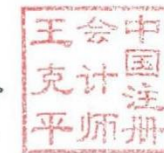 中国注册
会计师
王克平